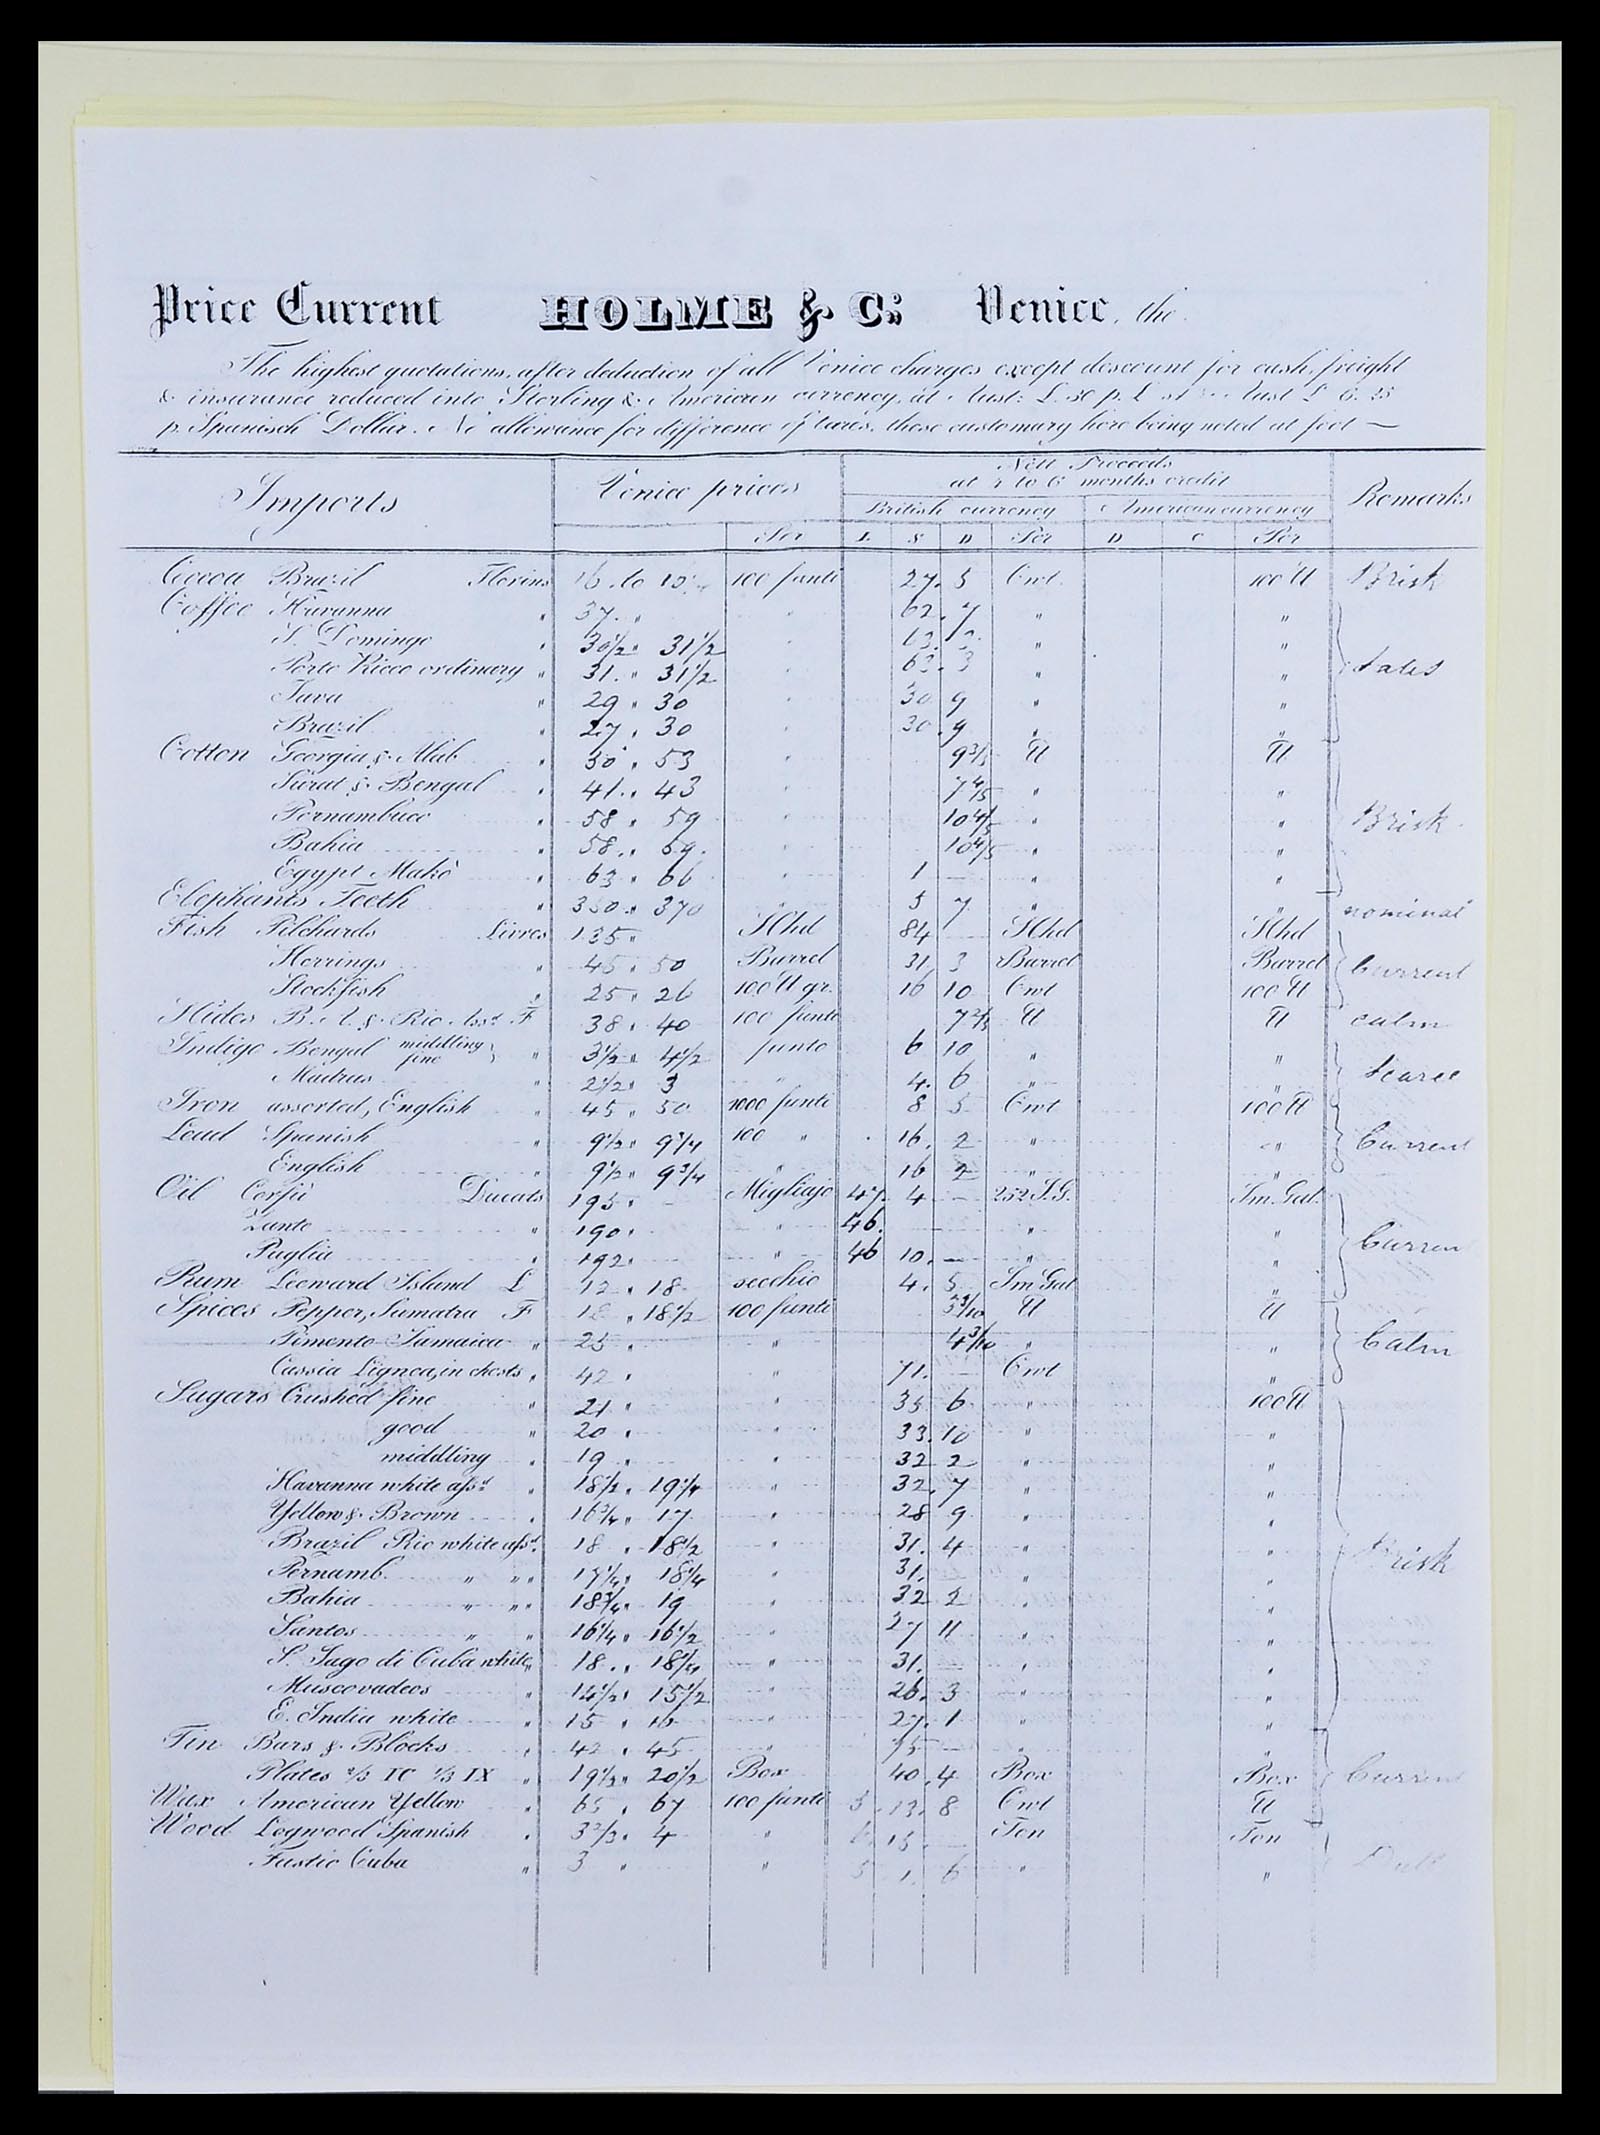 Price Current HOLME & C.: Venice, the
The highest quotations, after deduction of all Venice charges except descount for cash, freight
& insurance reduced into Sterling & American currency, at Aust: L. 30 p. L st Aust L 6. 25
p. Spanisch Dollar. No allowance for difference of tares, those customary here being noted at foot —
Imports Venice prices Nett Proceeds Remarks
at 4 to 6 months credit
British currency American currency
Per L S D Per D C Per
Cocoa Brazil Florins 16 . to 100 funti 27. 5 Cwt. 100 ℔ Brisk
Coffee Havanna " 37. " " 62. 7 " "
S. Domingo " 30 1/2 " 31 1/2 " 63. " "
Porto Ricco ordinary " 31. " 31 1/2 " 63. 3 " " Sales
Java " 29 " 30 " 30 9 " "
Brazil " 27 " 30 " 30. 9 " "
Cotton Georgia & Alab " " 53 " 9 3/5 ℔ ℔
Surat & Bengal " 41. " 43 " 7 4/5 " "
Pernambuco " 58 " 59 " 10 4/5 " " Brisk
Bahia " 58. " 59. " 10 4/5 " "
Egypt Makò " 63 " 66 " 1 — " "
Elephants Teeth " " 370 " 5 7 " " nominal
Fish Pilchards Livres 135 " Hhd 84 — Hhd Hhd
Herrings " 45 " 50 Barrel 31 3 Barrel Barrel Current
Stockfish " 25 " 26 100 ℔ gr. 16 10 Cwt 100 ℔
Hides B. A. & Rio Ass.t F 38 " 40 100 funti 7 2/5 ℔ ℔ calm
Indigo Bengal middling fine } " 3 1/2 " 4 1/2 funto 6 10 " "
Madras " 2 1/2 " 3 " 4. 6 " " scarce
Iron assorted, English " 45 " 50 1000 funti 8 5 Cwt 100 ℔
Lead Spanish " 9 1/2 " 9 3/4 100 " 16. 2 " " Current
English " 9 1/2 " 9 3/4 " 16 2 " "
Oil Corfù Ducats 195 " — Migliajo 47. 4 — 252 I.G. Im. Gal.
Zante " 190 " " 46. — — " "
Puglia " 192 " 46 10. — " " Current
Rum Leeward Island L 12 " 18 secchio 4. 5 Im Gal "
Spices Pepper, Sumatra F " 18 1/2 100 funti 3 3/10 ℔ ℔
Pimento Jamaica " 25 " " 4 3/10 " " Calm
Cassia Lignea, in chests " 42 " " 71. — Cwt "
Sugars Crushed fine " 21 " " 35 6 " 100 ℔
good " 20 " " 33. 10 " "
middling " 19 " " 32 2 " "
Havanna white ass.d " 18 1/2 " 19 1/4 " 32. 7 " "
Yellow & Brown " 16 3/4 " 17 " 28 9 " "
Brazil Rio white ass.d " 18 " 18 1/2 " 31. 4 " " Brisk
Pernamb. " " " 17 1/4 " 18 1/4 " 31. " "
Bahia " " " 18 3/4 " 19 " 32 2 " "
Santos " " 16 1/4 " 16 1/2 " 27 11 " "
S. Jago di Cuba white " 18 . " " 31. — " "
Muscovadoes " 14 1/2 " 15 1/2 " 26. 3 " "
E. India white " 15 " 16 " 27. 1 " "
Tin Bars & Blocks " 42 " 45 " 75 — " "
Plates 2/3 IC 1/3 IX " 19 1/2 " 20 1/2 Box 40. 4 Box Box Current
Wax American Yellow " 65 " 67 100 funti 5. 13. 8 Cwt ℔
Wood Logwood Spanish " 3 2/3 " 4 " 6 15 — Ton Ton
Fustic Cuba " 3 " " 5 1. 6 " " Dull